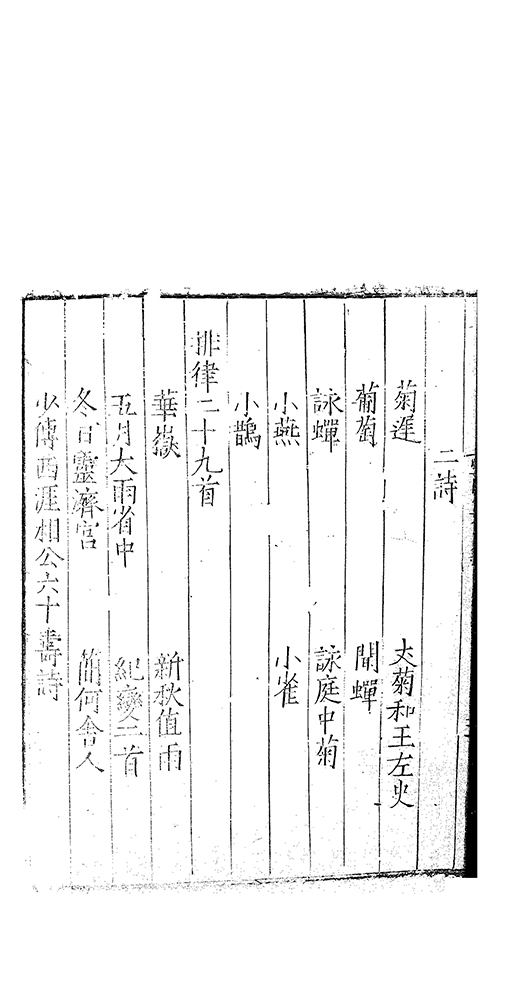 二詩
菊遲　菊和王左史
葡萄　聞蟬
詠蟬　詠庭中菊
小燕　小雀
小鵲
排律二十九首
華嶽　新秋值雨
五月大雨省中　紀變二首
冬日靈濟宮　簡何舍人
少傅西涯相公六十壽詩